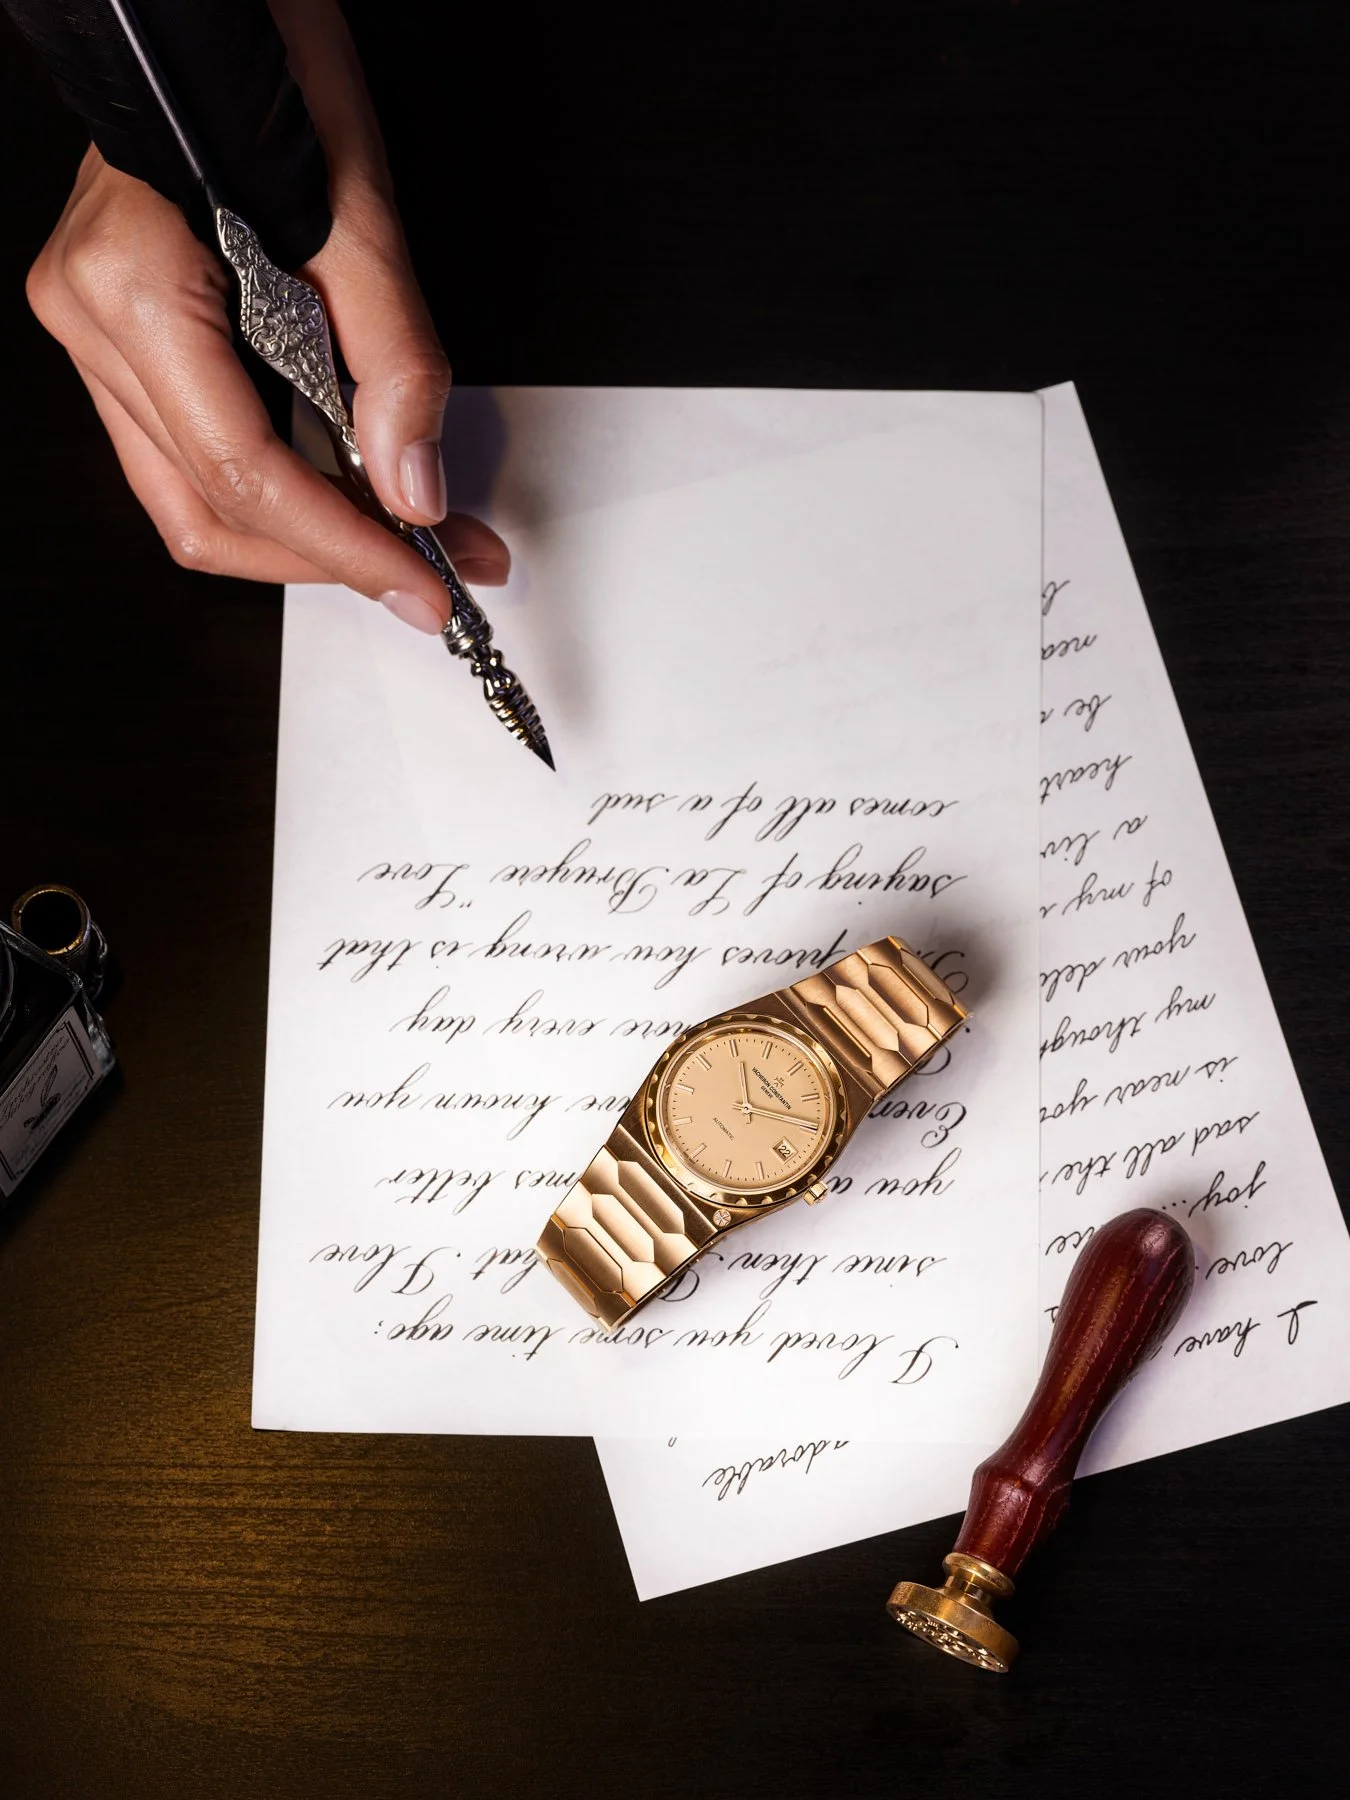 I loved you some time ago:
since then hat. I love
you a mes better
Ever ve known you
more every day
proves how wrong is that
saying of La Bruyere "Love
comes all of a sud
adorable
I have
love.
joy...
sad all the
is near you
my though
your del
of my
a liv
heart
be
nea
VACHERON CONSTANTIN
GENÈVE
AUTOMATIC
22